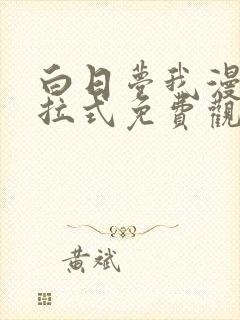 白日夢我漫
拉式免費觀
黃斌